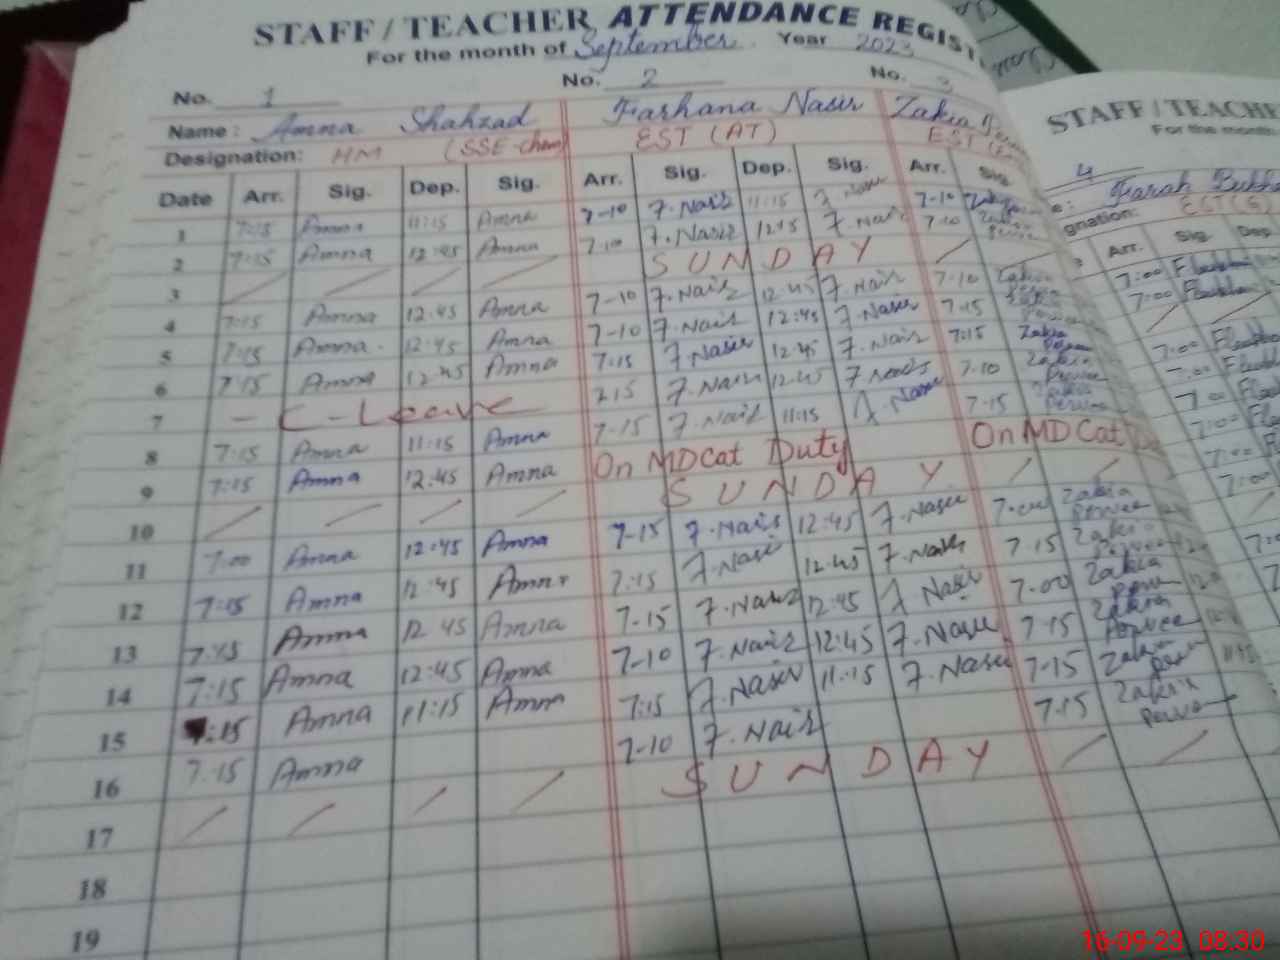 STAFF / TEACHER ATTENDANCE REGIST
For the month of September Year 2023
No. 1 No. 2 No. 3
Name: Amna Shahzad Farhana Nasir Zakia
Designation: HM (SSE-chem) EST (AT) EST
Date Arr. Sig. Dep. Sig. Arr. Sig. Dep. Sig. Arr. Sig
1 7:15 Amna 11:15 Amna 7-10 F.Nasir 11:15 F.Nasir 7-10 Zakia
2 7:15 Amna 12:45 Amna 7-10 F.Nasir 12:45 F.Nasir 7:10 Zakia
3 SUNDAY
4 7:15 Amna 12:45 Amna 7-10 F.Nasir 12:45 F.Nasir 7-10 Zakia
5 7:15 Amna 12:45 Amna 7-10 F.Nasir 12:45 F.Nasir 7-15 Zakia
6 7:15 Amna 12:45 Amna 7:15 F.Nasir 12:45 F.Nasir 7:15 Zakia
7 - C-Leave 7:15 F.Nasir 12:45 7-10 Zakia
8 7:15 Amna 11:15 Amna 7-15 F.Nasir 11:15 F.Nasir 7-15 Zakia
9 7:15 Amna 12:45 Amna On MDCat Duty On MDCat
10 SUNDAY
11 7:00 Amna 12:45 Amna 7-15 F.Nasir 12:45 F.Nasir 7:00 Zakia Perveen
12 7:15 Amna 12:45 Amna 7:15 F.Nasir 12:45 F.Nasir 7 15 Zakia
13 7:15 Amna 12 45 Amna 7-15 F.Nasir 12:45 F.Nasir 7-00 Zakia
14 7:15 Amna 12:45 Amna 7-10 F.Nasir 12:45 F.Nasir 7-15 Zakia
15 7:15 Amna 11:15 Amna 7:15 F.Nasir 11:15 F.Nasir 7-15 Zakia
16 7:15 Amna 7-10 F.Nasir 7-15 Zakia
17 SUNDAY
18
19
STAFF / TEACHE
For the month
4
e: Farah
gnation: EST(S)
Arr. Sig. Dep.
7:00
7:00
7:00
7:00
7:00
7:00
7:00
7:00
16-09-23 08:30